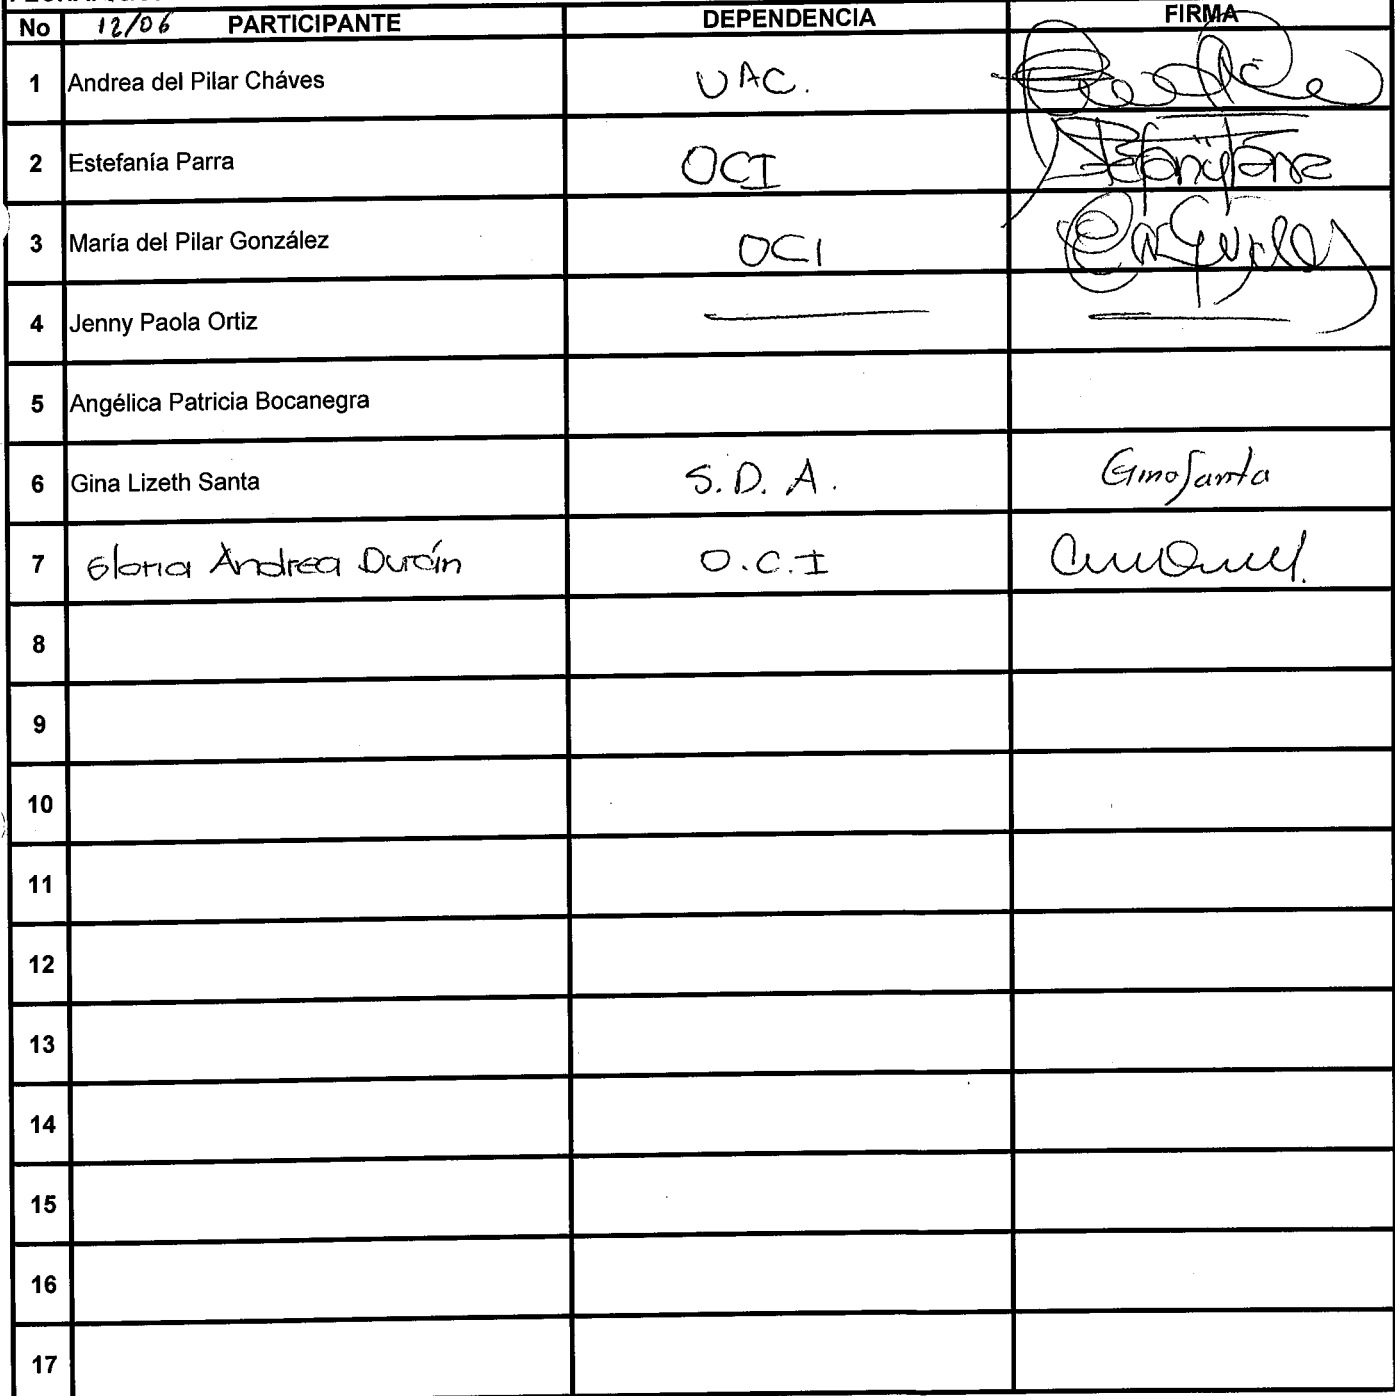 No 12/06 PARTICIPANTE DEPENDENCIA FIRMA
1 Andrea del Pilar Cháves UAC.
2 Estefanía Parra OCI
3 María del Pilar González OCI
4 Jenny Paola Ortiz
5 Angélica Patricia Bocanegra
6 Gina Lizeth Santa S.D.A. Gina Santa
7 Gloria Andrea Durán O.C.I
8
9
10
11
12
13
14
15
16
17